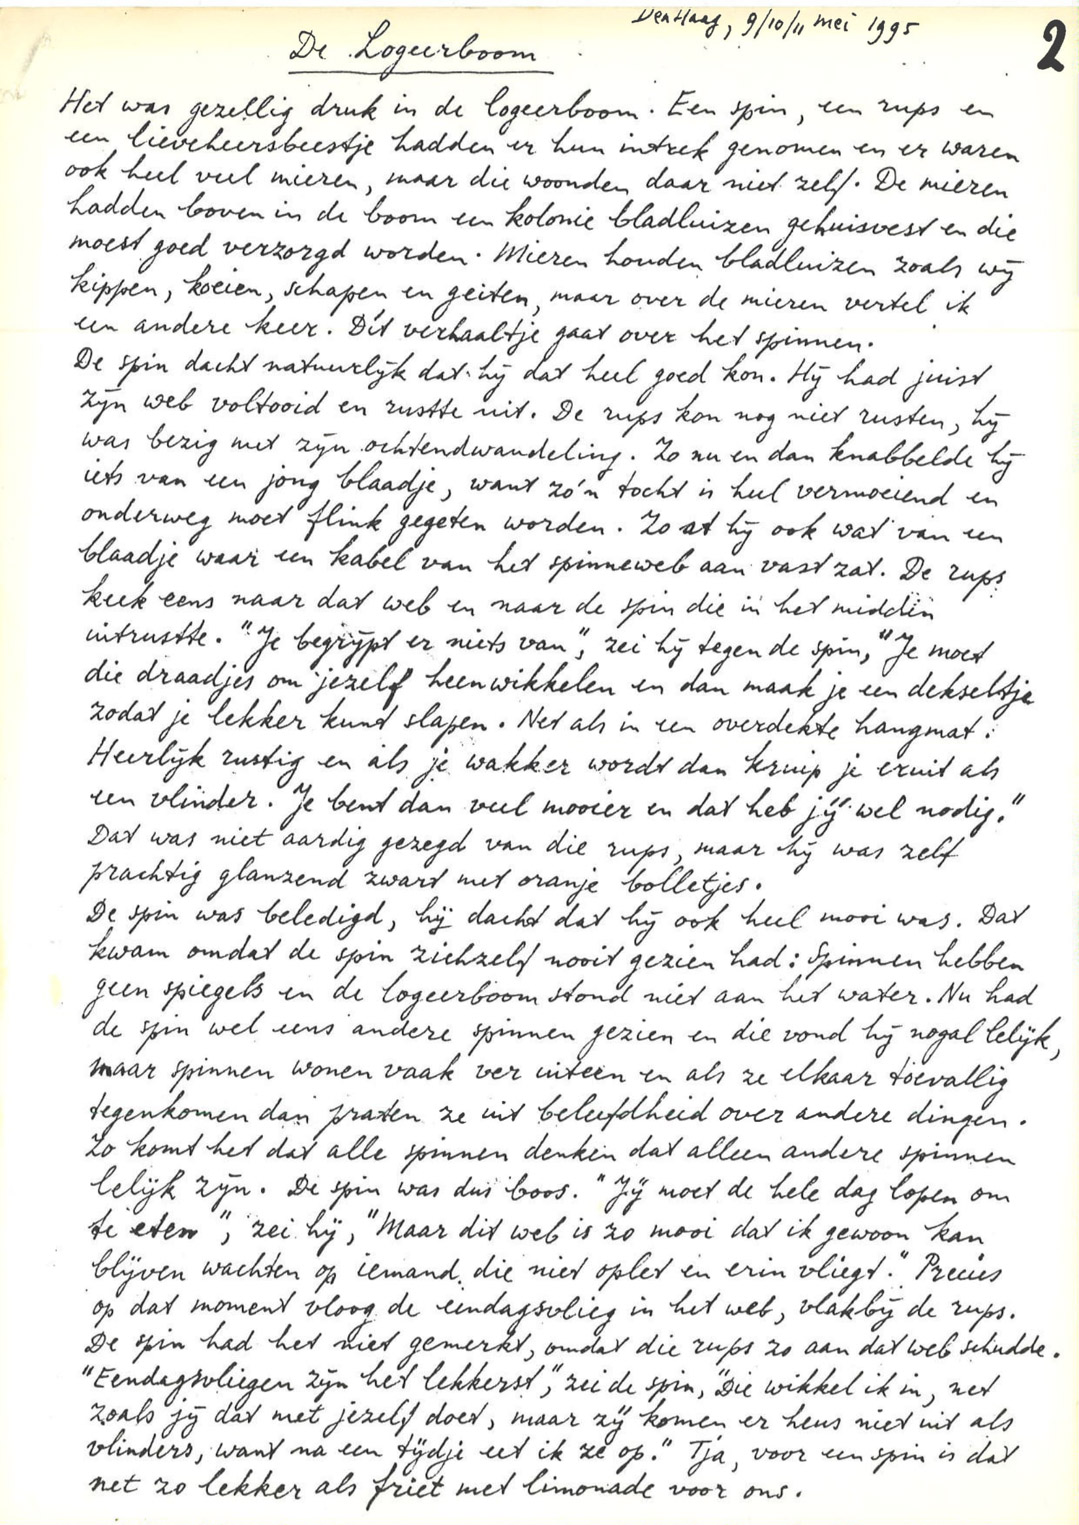 Den Haag, 9/10/11 mei 1995
2
De Logeerboom
Het was gezellig druk in de logeerboom. Een spin, een rups en
een lieveheersbeestje hadden er hun intrek genomen en er waren
ook heel veel mieren, maar die woonden daar niet zelf. De mieren
hadden boven in de boom een kolonie bladluizen gehuisvest en die
moest goed verzorgd worden. Mieren houden bladluizen zoals wij
kippen, koeien, schapen en geiten, maar over de mieren vertel ik
een andere keer. Dít verhaaltje gaat over het spinnen.
De spin dacht natuurlijk dat hij dat heel goed kon. Hij had juist
zijn web voltooid en rustte uit. De rups kon nog niet rusten, hij
was bezig met zijn ochtendwandeling. Zo nu en dan knabbelde hij
iets van een jong blaadje, want zo'n tocht is heel vermoeiend en
onderweg moet flink gegeten worden. Zo at hij ook wat van een
blaadje waar een kabel van het spinneweb aan vast zat. De rups
keek eens naar dat web en naar de spin die in het midden
uitrustte. "Je begrijpt er niets van", zei hij tegen de spin, "Je moet
die draadjes om jezelf heenwikkelen en dan maak je een dekseltje
zodat je lekker kunt slapen. Net als in een overdekte hangmat.
Heerlijk rustig en als je wakker wordt dan kruip je eruit als
een vlinder. Je bent dan veel mooier en dat heb jij wel nodig."
Dat was niet aardig gezegd van die rups, maar hij was zelf
prachtig glanzend zwart met oranje bolletjes.
De spin was beledigd, hij dacht dat hij ook heel mooi was. Dat
kwam omdat de spin zichzelf nooit gezien had: Spinnen hebben
geen spiegels en de logeerboom stond niet aan het water. Nu had
de spin wel eens andere spinnen gezien en die vond hij nogal lelijk,
maar spinnen wonen vaak ver uiteen en als ze elkaar toevallig
tegenkomen dan praten ze uit beleefdheid over andere dingen.
Zo komt het dat alle spinnen denken dat alleen andere spinnen
lelijk zijn. De spin was dus boos. "Jij moet de hele dag lopen om
te eten", zei hij, "Maar dit web is zo mooi dat ik gewoon kan
blijven wachten op iemand die niet oplet en erin vliegt." Precies
op dat moment vloog de eendagsvlieg in het web, vlakbij de rups.
De spin had het niet gemerkt, omdat die rups zo aan dat web schudde.
"Eendagsvliegen zijn het lekkerst", zei de spin, "Die wikkel ik in, net
zoals jij dat met jezelf doet, maar zij komen er heus niet uit als
vlinders, want na een tijdje eet ik ze op." Tja, voor een spin is dat
net zo lekker als friet met limonade voor ons.